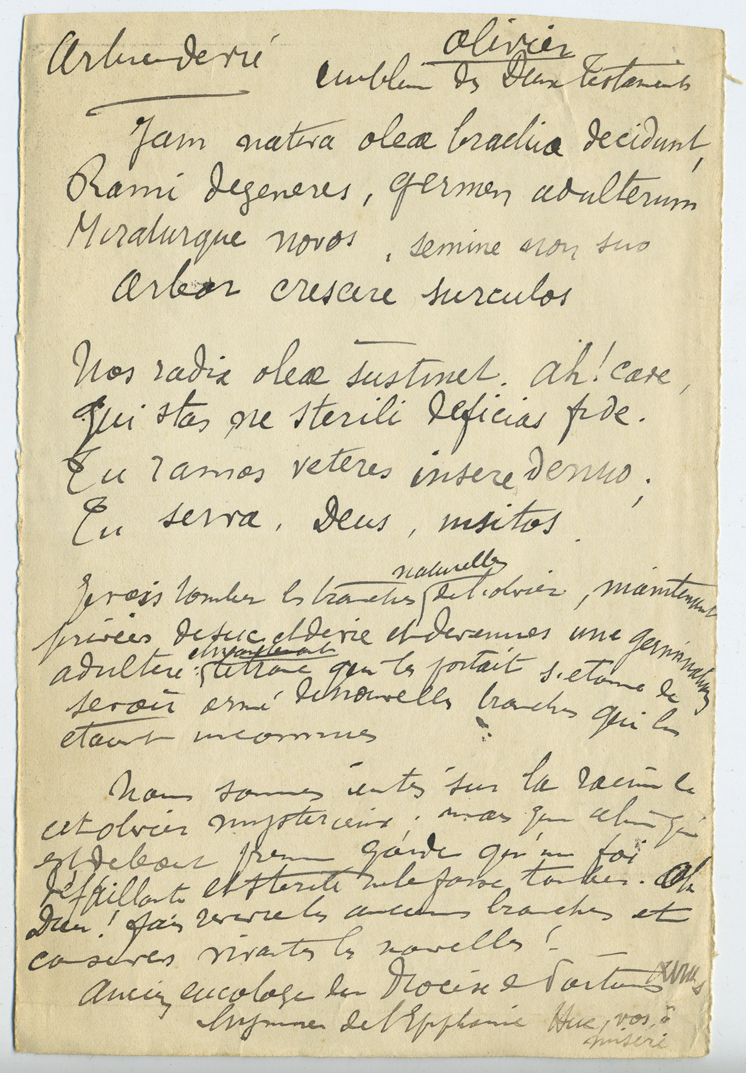 Arbre de vie
olivier
emblem des Deux testaments
Jam nativa oleæ brachia decidunt,
Rami degeneres, germen adulterum
Miraturque novos, semine non suo
Arbor crescere surculos
Nos radix oleæ sustinet. Ah! cave,
Qui stas ne sterili deficias fide.
Tu ramos veteres insere denuo;
Tu serva, Deus, insitos.
Je vois tomber les branches naturelles de l'olivier, maintenant
privées de suc et de vie et devenues une germination
adultère: et le tronc qui les portait s'etonne de
se voir orné de nouvelles branches qui lui
etaient inconnues
Nous sommes entés sur la racine de
cet olivier mysterieux: mais que celui qui
est debout prenne garde qu'une foi
défaillante et sterile ne le fasse tomber. Oh
Dieu! fais revivre les anciennes branches et
conserves vivantes les nouvelles!
Ancien eucologe du Diocèse de Poitiers
hymne de l'Epiphanie Huc, vos, ô
miseri